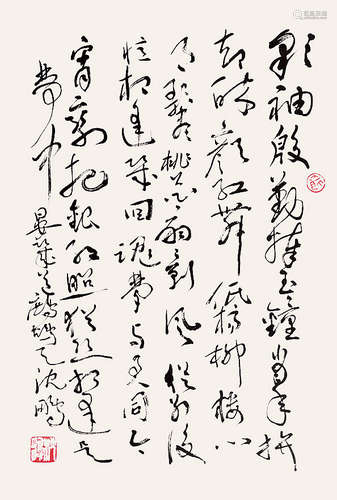 彩袖殷勤捧玉鍾當年拚
却醉顏紅舞低楊柳樓心
月歌盡桃花扇影風從別後
憶相逢幾回魂夢與君同今
宵剩把銀釭照猶恐相逢是
夢中
晏幾道鷓鴣天 沈鵬